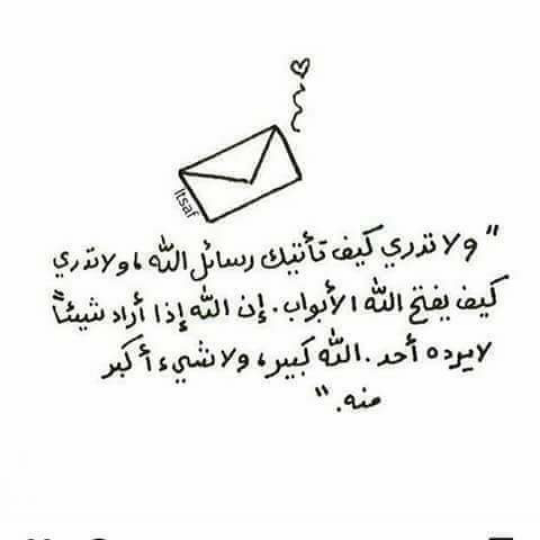 Itsaf
"ولا تدري كيف تأتيك رسائل الله، ولا تدري
كيف يفتح الله الأبواب. إن الله إذا أراد شيئاً
لا يرده أحد. الله كبير، ولا شيء أكبر
منه."